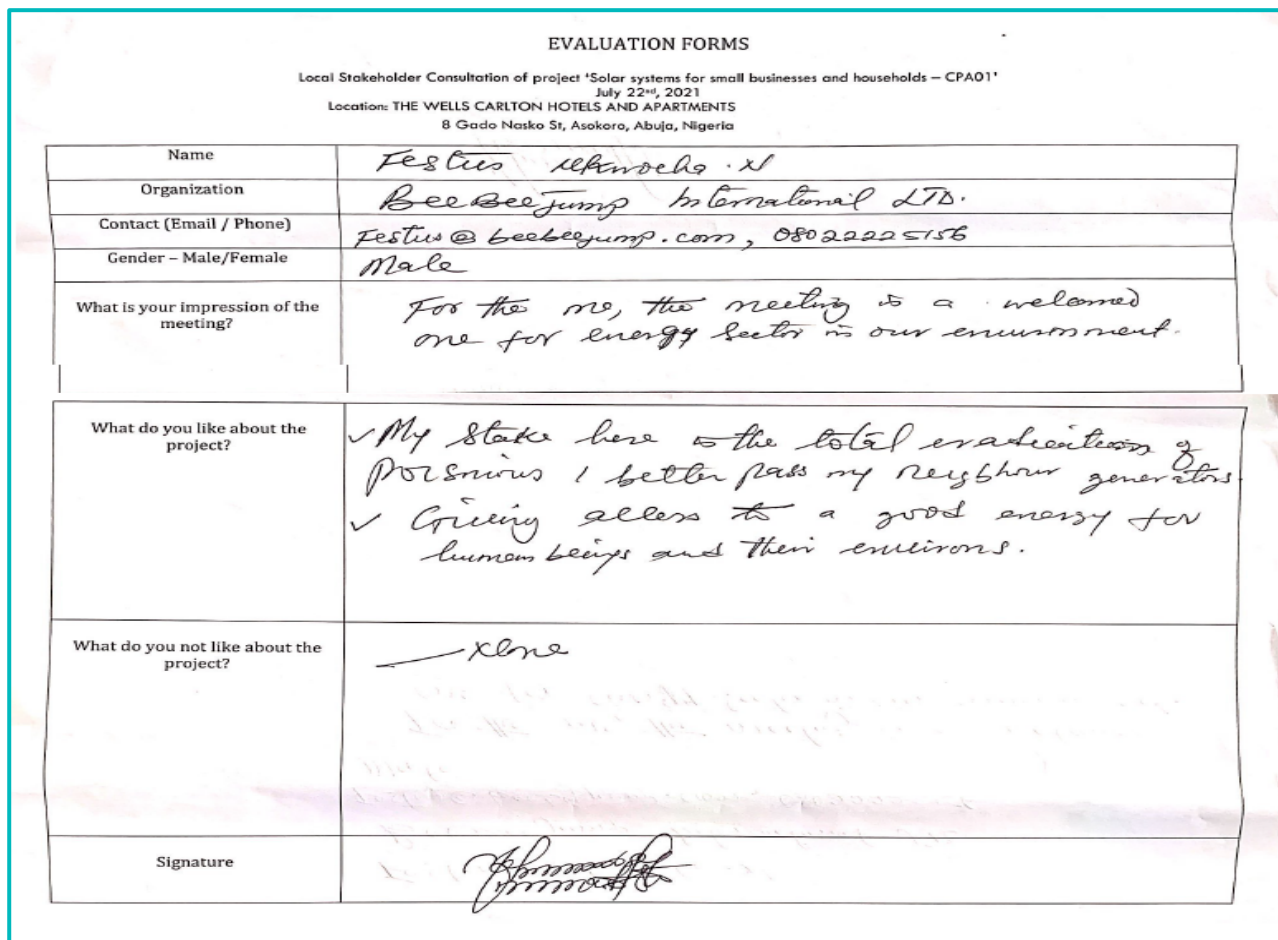 EVALUATION FORMS
Local Stakeholder Consultation of project 'Solar systems for small businesses and households – CPA01'
July 22nd, 2021
Location: THE WELLS CARLTON HOTELS AND APARTMENTS
8 Gado Nasko St, Asokoro, Abuja, Nigeria
Name
Festus .N
Organization
BeeBeeJump International LTD.
Contact (Email / Phone)
Festus@beebeejump.com, 08022225156
Gender – Male/Female
Male
What is your impression of the
meeting?
For the me, the meeting is a welcomed
one for energy sector in our environment.
What do you like about the
project?
✓ My Stake here is the total eradication of
I better pass my neighbour generators.
✓ Giving access to a good energy for
human beings and their environs.
What do you not like about the
project?
— None
Signature